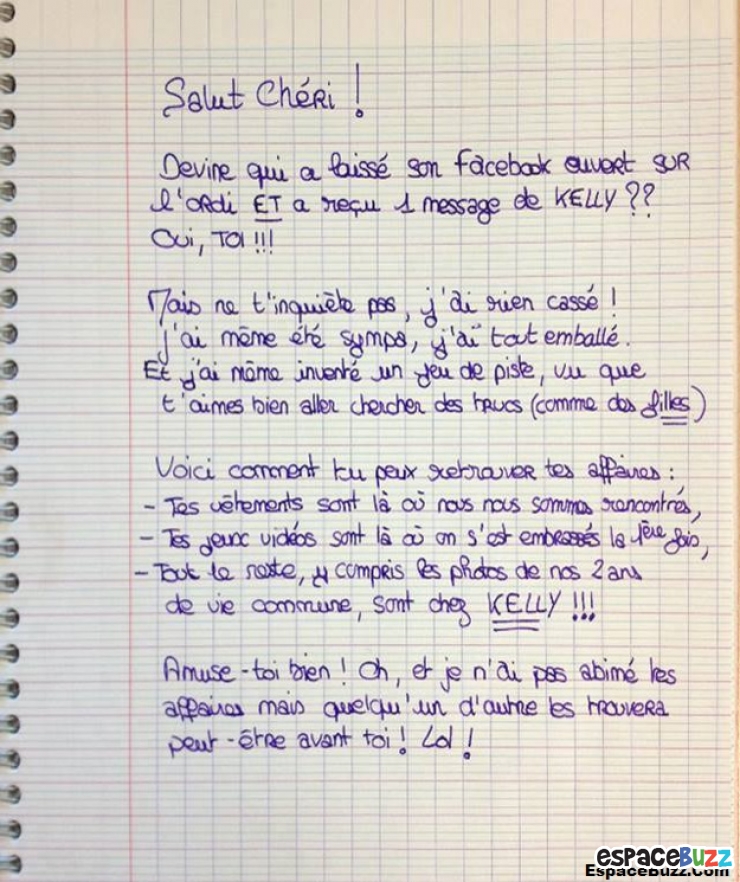 Salut Chéri !
Devine qui a laissé son facebook ouvert sur
l'ordi ET a reçu 1 message de KELLY ??
Oui, TOI !!!
Mais ne t'inquiète pas, j'ai rien cassé !
j'ai même été sympa, j'ai tout emballé.
Et j'ai même inventé un jeu de piste, vu que
t'aimes bien aller chercher des trucs (comme des filles)
Voici comment tu peux retrouver tes affaires :
- Tes vêtements sont là où nous nous sommes rencontrés,
- Tes jeux vidéos sont là où on s'est embrassés la 1ère fois,
- Tout le reste, y compris les photos de nos 2 ans
de vie commune, sont chez KELLY !!!
Amuse-toi bien ! Oh, et je n'ai pas abimé tes
affaires mais quelqu'un d'autre les trouvera
peut-être avant toi ! Lol !
espaceBuzz
EspaceBuzz.Com